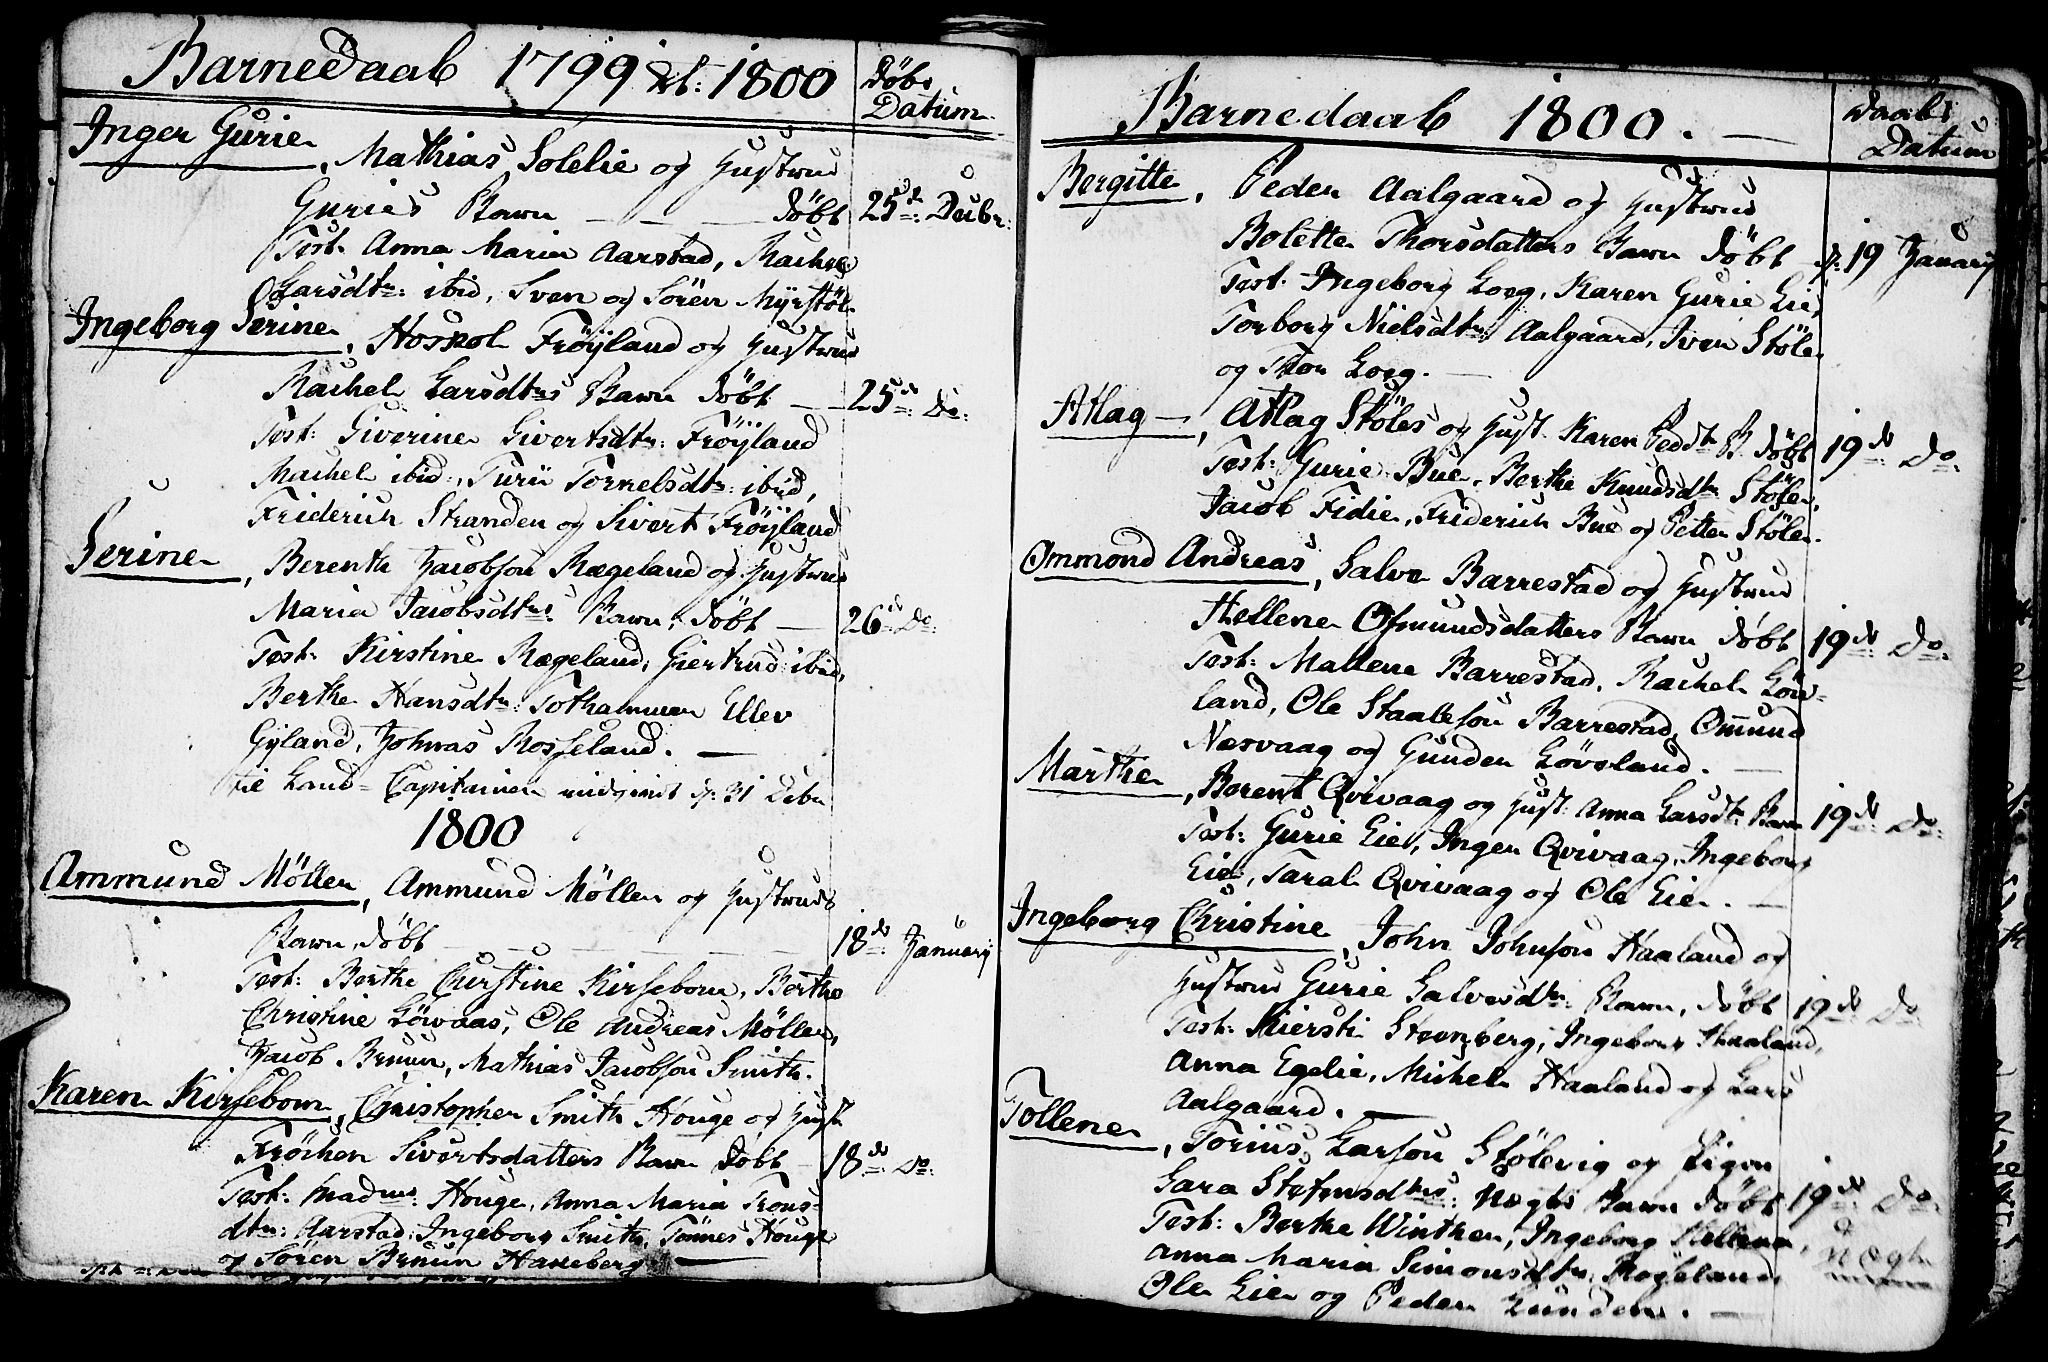 Barnedaab 1799 et: 1800
Döbs
Datum
Inger Gurie
, Mathias Solelie og Hustrue
Guries Barn — — — döbt 25de: Decbr:
Test: Anna Maria Aarstad, Rachel
Larsdtr: ibid, Sven og Sören Myrstöl
Ingeborg Serine
, Hoskol Fröyland og Hustrue
Rachel Larsdtrs Barn döbt — 25de: Do:
Test: Siverine Sivertsdtr: Fröyland
Rachel ibid:, Turii Tornelsdtr: ibid,
Friderich Stranden og Sivert Fröyland
Serine
, Berenth Jacobson Rægeland og Hustrue
Maria Jacobsdtrs: Barn, döbt — 26de: Do:
Test: Kirstine Rægeland, Giertrud ibid,
Berthe Hansdtr: Tothammer Ellev
Gyland, Johnas Rosseland. —
til Land-Capitainen indgivet d: 31 Debr
1800
Ammund Möller, Ammund Möller og Hustrues
Barn, döbt — — — 18de: January
Test: Berthe Christine Kirsebom, Berthe
Christine Löwaas, Ole Andreas Möller,
Jacob Bruun, Mathias Jacobson Smith.
Karen Kirsebom, Christopher Smith Houge og Hust:
Fröchen Sivertsdatters Barn döbt — 18de: Do:
Test: Madme: Houge, Anna Maria Trons-
dtr: Aarstad, Ingeborg Smith, Tönnes Houge
og Sören Bruun Haneberg —
Barnedaab 1800. —
Daabs
Datum
Bergitte, Peder Aalgaard og Hustrue
Bolette Thorsdatters Barn döbt d: 19 January
Test: Ingeborg Loeg, Karen Gurie Eie,
Torborg Nielsdtr: Aalgaard, Iver Stöle
og Thor Loeg. —
Atlag —, Atlag Stöles og Hust: Karen Peddtr B. döbt 19de: Do:
Test: Gurie Bue, Berthe Knudsdtr Stöle,
Jacob Fidie, Friderich Bue og Petter Stöle.
Ommond Andreas, Salve Barrestad og Hustrue
Hellene Osmundsdatters Barn döbt 19de: Do:
Test: Mallene Barrestad, Rachel Löv-
land, Ole Staaleson Barrestad, Omund
Næsvaag og Gunder Lövsland. —
Marthe
, Berent Qvivaag og Hust: Anna Larsdtr: Barn 19de: Do:
Test: Gurie Eie, Inger Qvivaag, Ingeborg
Eie, Taral Qvivaag og Ole Eie. —
Ingeborg Christine, John Johnson Haaland og
Hustrue Gurie Salvesdtr: Barn, döbt 19de Do:
Test: Kiersti Steenberg, Ingeborg Haaland,
Anna Egelie, Michel Haaland og Lars
Aalgaard. —
Tollene
, Torius Larson Stölevig og Pigen
Sara Stefensdtrs: Uægte Barn döbt 19de: Do:
Test: Berthe Winther, Ingeborg Hellene, Uægte
Anna Maria Simonsdtr, Rogeland
Ole Eie og Peder Lunden. —